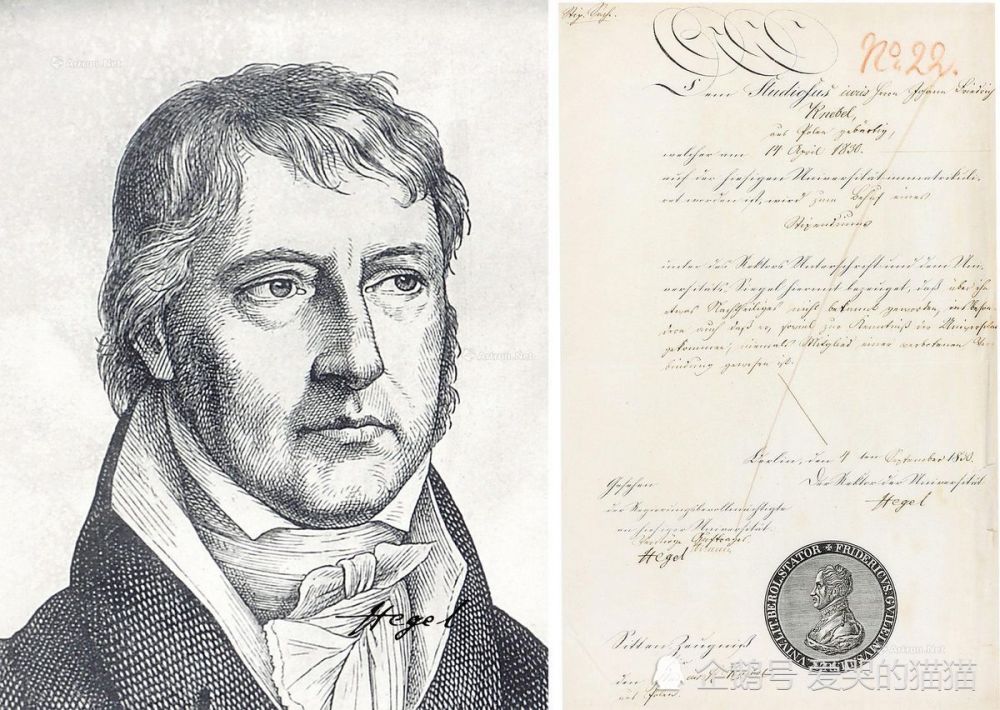 Artron.Net
Hegel
Artron.Net
Stip. Sache.
No. 22.
Dem Studiosus Herrn Johann Friedrich
Knebel,
aus Polen gebürtig,
welcher am 14 April 1830.
auf der hiesigen Universität immatrikuli-
rt worden ist, wird zum Behuf eines
Stipendiums
unter des Rektors Unterschrift und dem Uni-
versitäts Siegel hiermit bezeuget, daß über ihn
etwas Nachtheiliges nicht bekannt geworden, insbeson
dere auch daß er, soviel zur Kenntniß der Universität
gekommen, niemals Mitglied einer verbotenen Ver
bindung gewesen ist.
Berlin, den 4 ten September 1830.
Der Rektor der Universität
Hegel
Gesehen
der Regierungsbevollmächtigte
an hiesiger Universität.
Hegel
FRIDERICVS GVILELMVS
VNIVERSITATI LITTER STATOR
Artron.Net
Sitten Zeugniß
den
aus Polen.
企鹅号 爱哭的猫猫